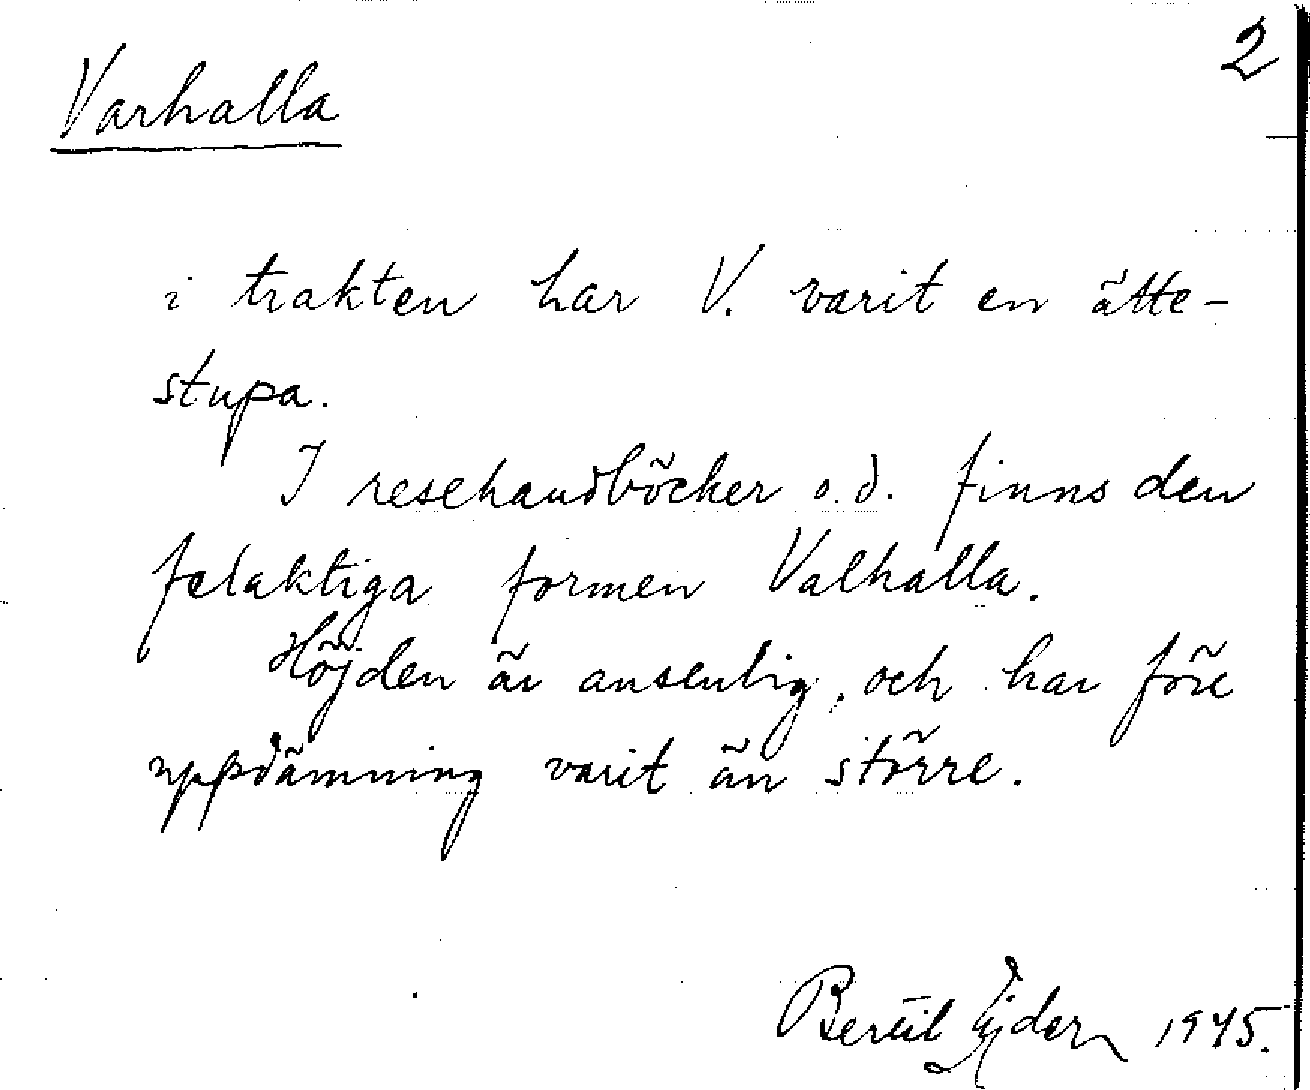 2
Varhalla
i trakten har V. varit en ätte-
stupa.
I resehandböcker o.d. finns den
felaktiga formen Valhalla.
Höjden är ansenlig, och har före
uppdämning varit än större.
Bertil Ejder 1945.